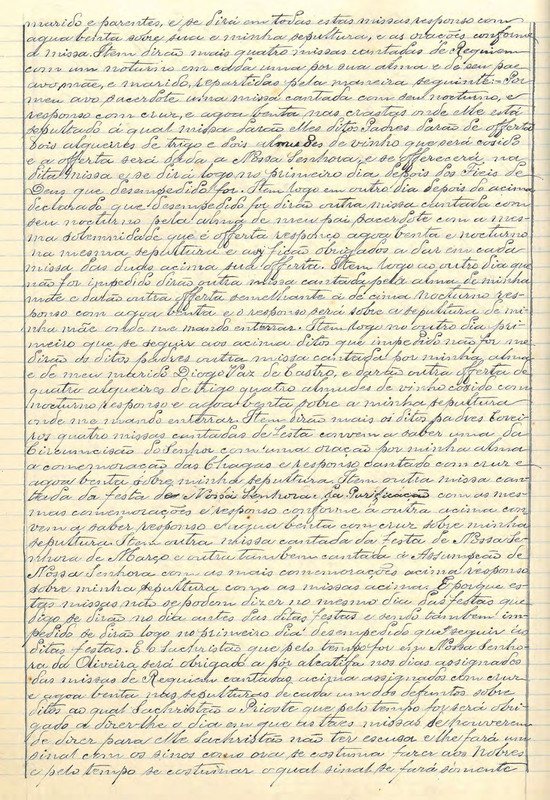 marido e parentes, e se dirá em todas estas missas responso com
agoa benta sobre sua e minha sepultura, e as orações conforme
a missa. Item dirão mais quatro missas cantadas de Requiem
com um noturno em cada uma por sua alma e de seu pae
avo, mãe, e marido, repartidas pela maneira seguinte = Por
meu avo sacerdote uma missa cantada com seu nocturno, e
responso com cruz, e agoa benta nas crastas onde elle está
sepultado á qual missa darão elles ditos Padres darão de offerta
dois alqueires de trigo e dois almudes de vinho que será cosido
e a offerta será dada a Nossa Senhora, e se offerecerá, na
dita missa e se dirá logo no primeiro dia depois dos Fieis de
Deus que desempedido for. Item logo em outro dia depois do acima
declarado que desempedido for dirão outra missa cantada com
seu nocturno pela alma de meu pai sacerdote com a mes-
ma solemnidade que é offerta responço agoa benta e nocturno
na mesma sepultura e assy ficão obrigados a dar em cada
missa das duas acima sua offerta. Item logo no outro dia que
não for impedido dirão outra missa cantada pela alma de minha
mãe e darão outra offerta semelhante á de cima nocturno res-
ponso com agoa benta e o responso será sobre a sepultura de mi-
nha mãe onde me mando enterrar. Item logo no outro dia pri-
meiro que se seguir aos acima ditos que impedido não for me
dirão os ditos padres outra missa cantada por minha alma
e de meu marido Diogo Vaz de Castro, e darão outra offerta de
quatro alqueires de trigo quatro almudes de vinho cosido com
nocturno responso e agoa benta sobre a minha sepultura
onde me mando enterrar. Item dirão mais os ditos padres
quatro missas cantadas de festa convem a saber uma da
Circumcisão do Senhor com uma oração por minha alma
a comemoração das Chagas e responso cantado com cruz e
agoa benta sobre minha sepultura. Item outra missa can-
tada da festa de Nossa Senhora da Purificação com as mes-
mas comemorações e responso conforme á outra acima con-
vem a saber responso e agoa benta com cruz sobre minha
sepultura Item outra missa cantada da festa de Nossa Se-
nhora de Março e outra tambem cantada d'Assumpção de
Nossa Senhora com as mais comemorações acima responso
sobre minha sepultura como as missas acima. E porque es-
tas missas não se podem dizer no mesmo dia das festas que
digo se dirão no dia antes das ditas festas e sendo tambem im-
pedido se dirão logo no primeiro dia desempedido que seguir ás
ditas festas. E o Sachristão que pelo tempo for em Nossa Senho-
ra da Oliveira será obrigado a pôr alcatifa nos dias assignados
das missas de Requiem cantadas acima assignados com cruz
e agoa benta nas sepulturas de cada um dos defuntos sobre-
ditos ao qual Sachristão o Prioste que pelo tempo for será obri-
gado a dizer-lhe o dia em que as taes missas se houverem
de dizer para elle Sachristão não ter escusa e lhe fará um
sinal com os sinos como ora se costuma fazer aos Nobres
e pelo tempo se costumar o qual sinal se fará sómente